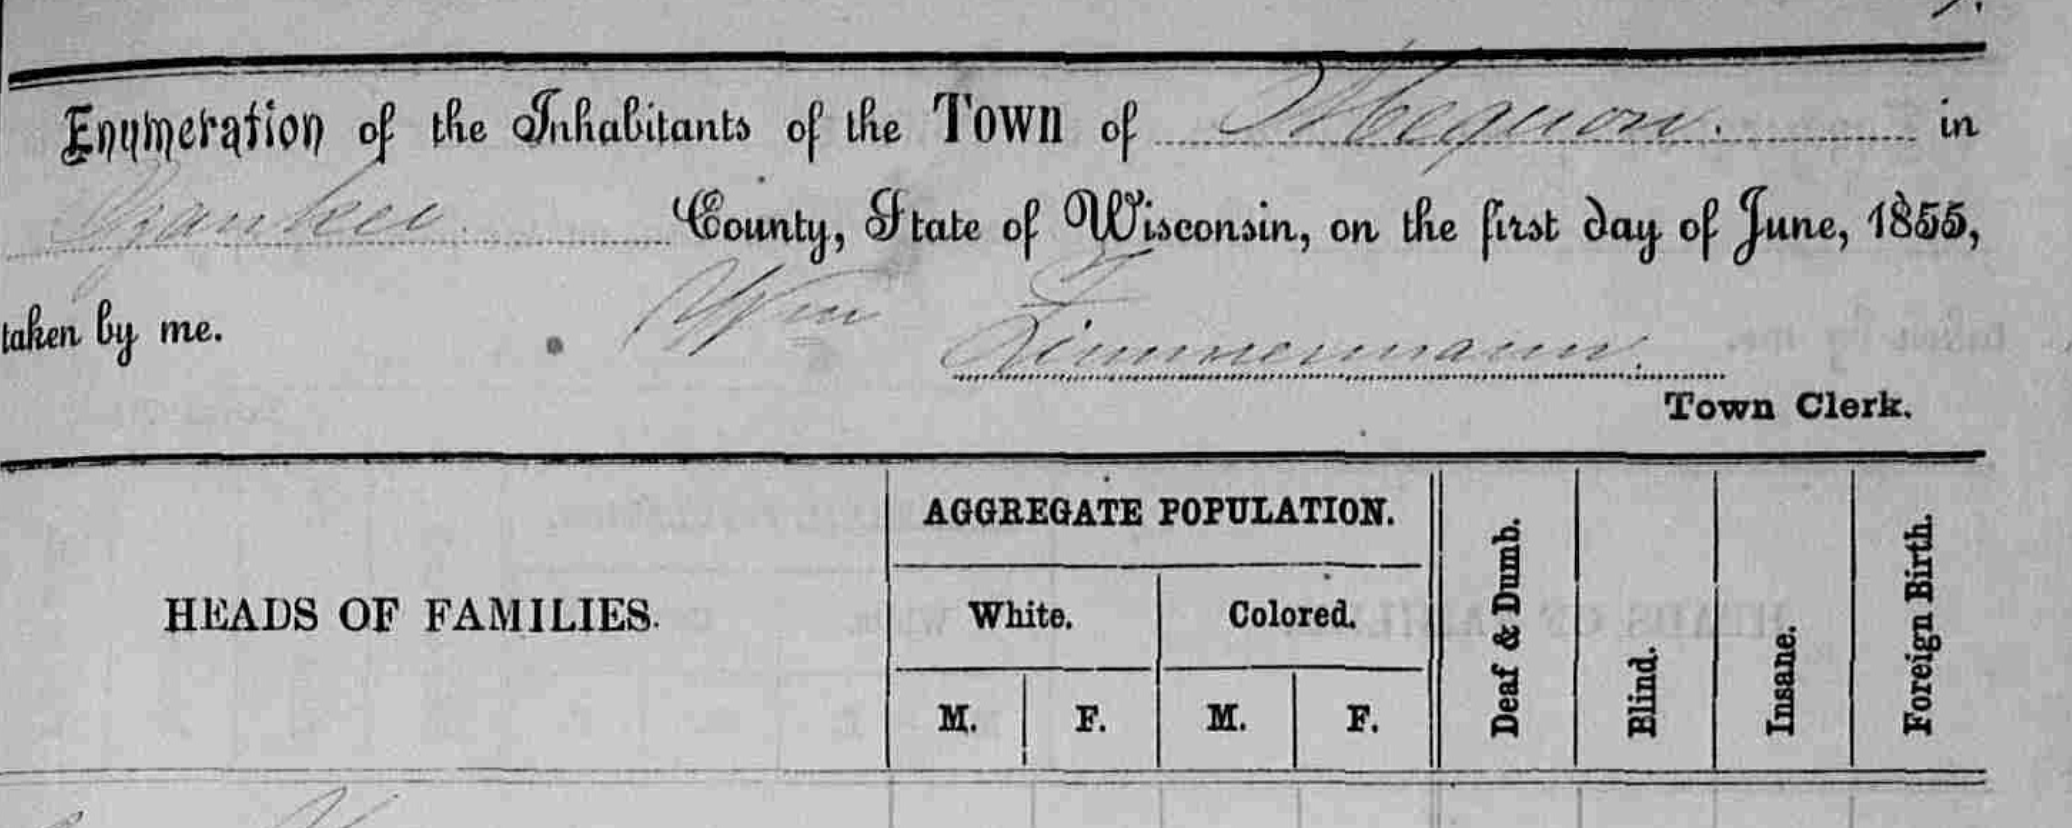 Enumeration of the Inhabitants of the Town of Mequon. in
Ozaukee County, State of Wisconsin, on the first day of June, 1855,
taken by me. Wm Zimmermann.
Town Clerk.
HEADS OF FAMILIES.
AGGREGATE POPULATION.
White. Colored.
M. F. M. F.
Deaf & Dumb.
Blind.
Insane.
Foreign Birth.